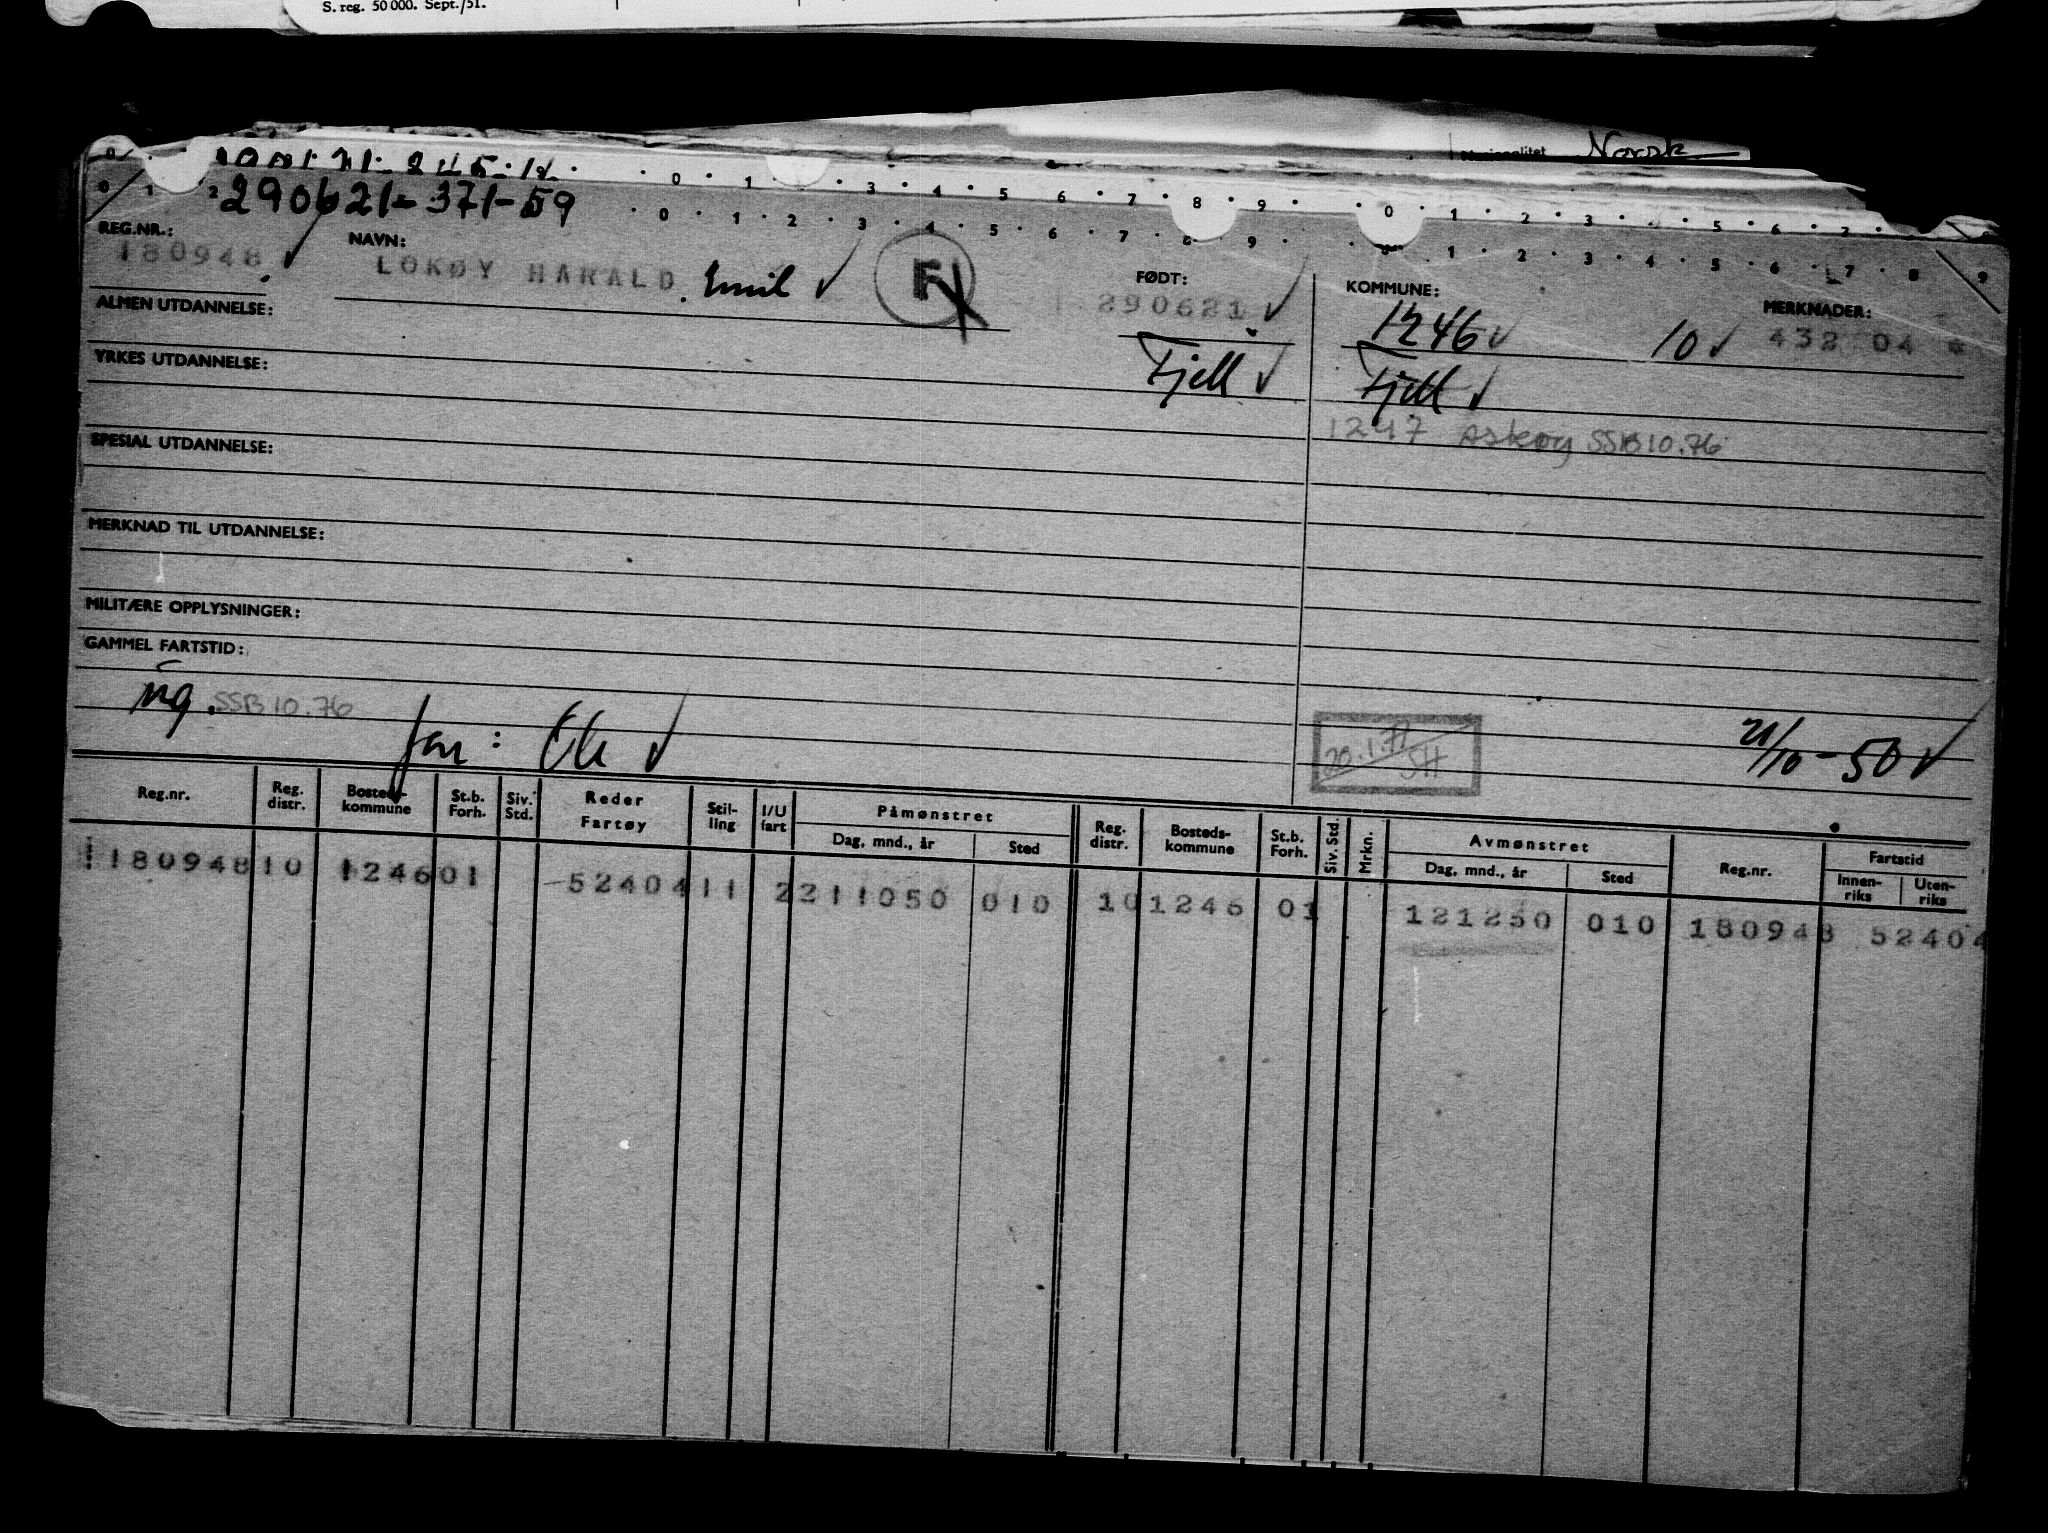 S. reg. 50 000. Sept./51.
Norsk
0 1 2 3 4 5 6 7 8 9 0 1 2 3 4 5 6 7
290621-371-59
0 1 2 3 4 5 6 7 8 9 1 2 3 4 5 6 7 8 9
REG.NR.: NAVN: FØDT: KOMMUNE: MERKNADER:
180948 LOKØY HARALD Emil F 290621 1246 10 432 04 *
ALMEN UTDANNELSE:
Fjell Fjell
YRKES UTDANNELSE:
1247 Askøy SSB 10.76
SPESIAL UTDANNELSE:
MERKNAD TIL UTDANNELSE:
MILITÆRE OPPLYSNINGER:
GAMMEL FARTSTID:
ug. SSB 10.76
20.1.77 SH
21/10-50
Reg.nr. Reg. distr. Bosteds-kommune St.b. Forh. Siv. Std. Reder Fartøy Stil-ling I/U fart Påmønstret Dag, mnd., år Sted Reg. distr. Bosteds-kommune St.b. Forh. Siv. Std. Mrkn. Avmønstret Dag, mnd., år Sted Reg.nr. Fartstid Innen-riks Uten-riks
180948 10 1246 01 52404 11 2 211050 010 10 1246 01 121250 010 180948 52404